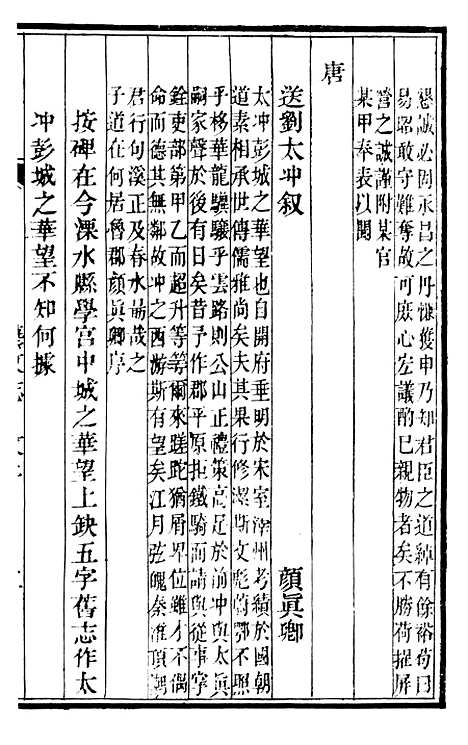 懇誠必固永昌之丹慊獲申乃知君臣之道綽有餘裕苟曰
易昭敢守難奪故可庶心宏議酌已親物者矣不勝荷擢屏
營之誠謹附某官
某甲奉表以聞
唐
送劉太冲叙 顏眞卿
太冲彭城之華望也自開府垂明於宋室澤州考績於國朝
道素相承世傳儒雅尚矣夫其果行修潔斯文彪蔚鄂不照
乎移華龍驤驟乎雲路則公山正禮策高足於前冲與太
嗣家聲於後有日矣昔予作郡平原拒鐵騎而請與從事掌
銓吏部第甲乙而超升等等爾來蹉跎猶屑卑位雖才不偶
命而德其無鄰故冲之西游斯有望矣江月弦魄秦淮頂潮
君行句溪正及春水勗哉之
子道在何居魯郡顏眞卿序
按碑在今溧水縣學宮中城之華望上缺五字舊志作太
冲彭城之華望不知何據